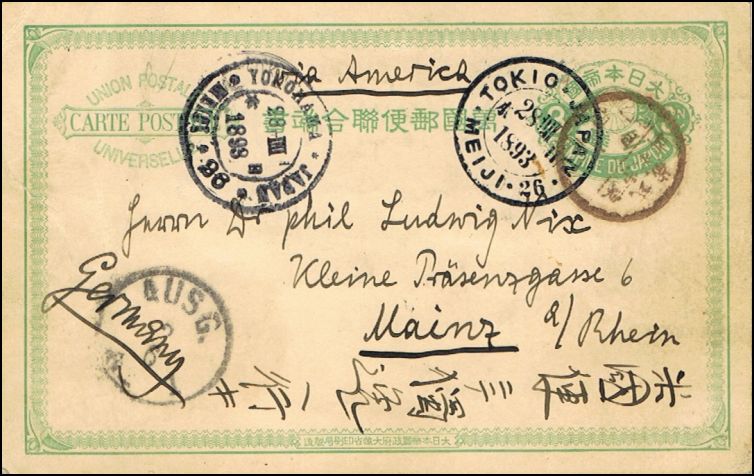 UNION POSTALE
CARTE POSTALE
UNIVERSELLE
Via America
萬國郵便聯合端書
大日本帝國
YOKOHAMA JAPAN
MEIJI 26
28 III
1893
TOKIO JAPAN
28 III
1893
MEIJI 26
Herrn Dr phil Ludwig Nix
Kleine Präsenzgasse 6
Mainz a/Rhein
Germany
AUSG.
大日本帝國政府大藏省印刷局製造